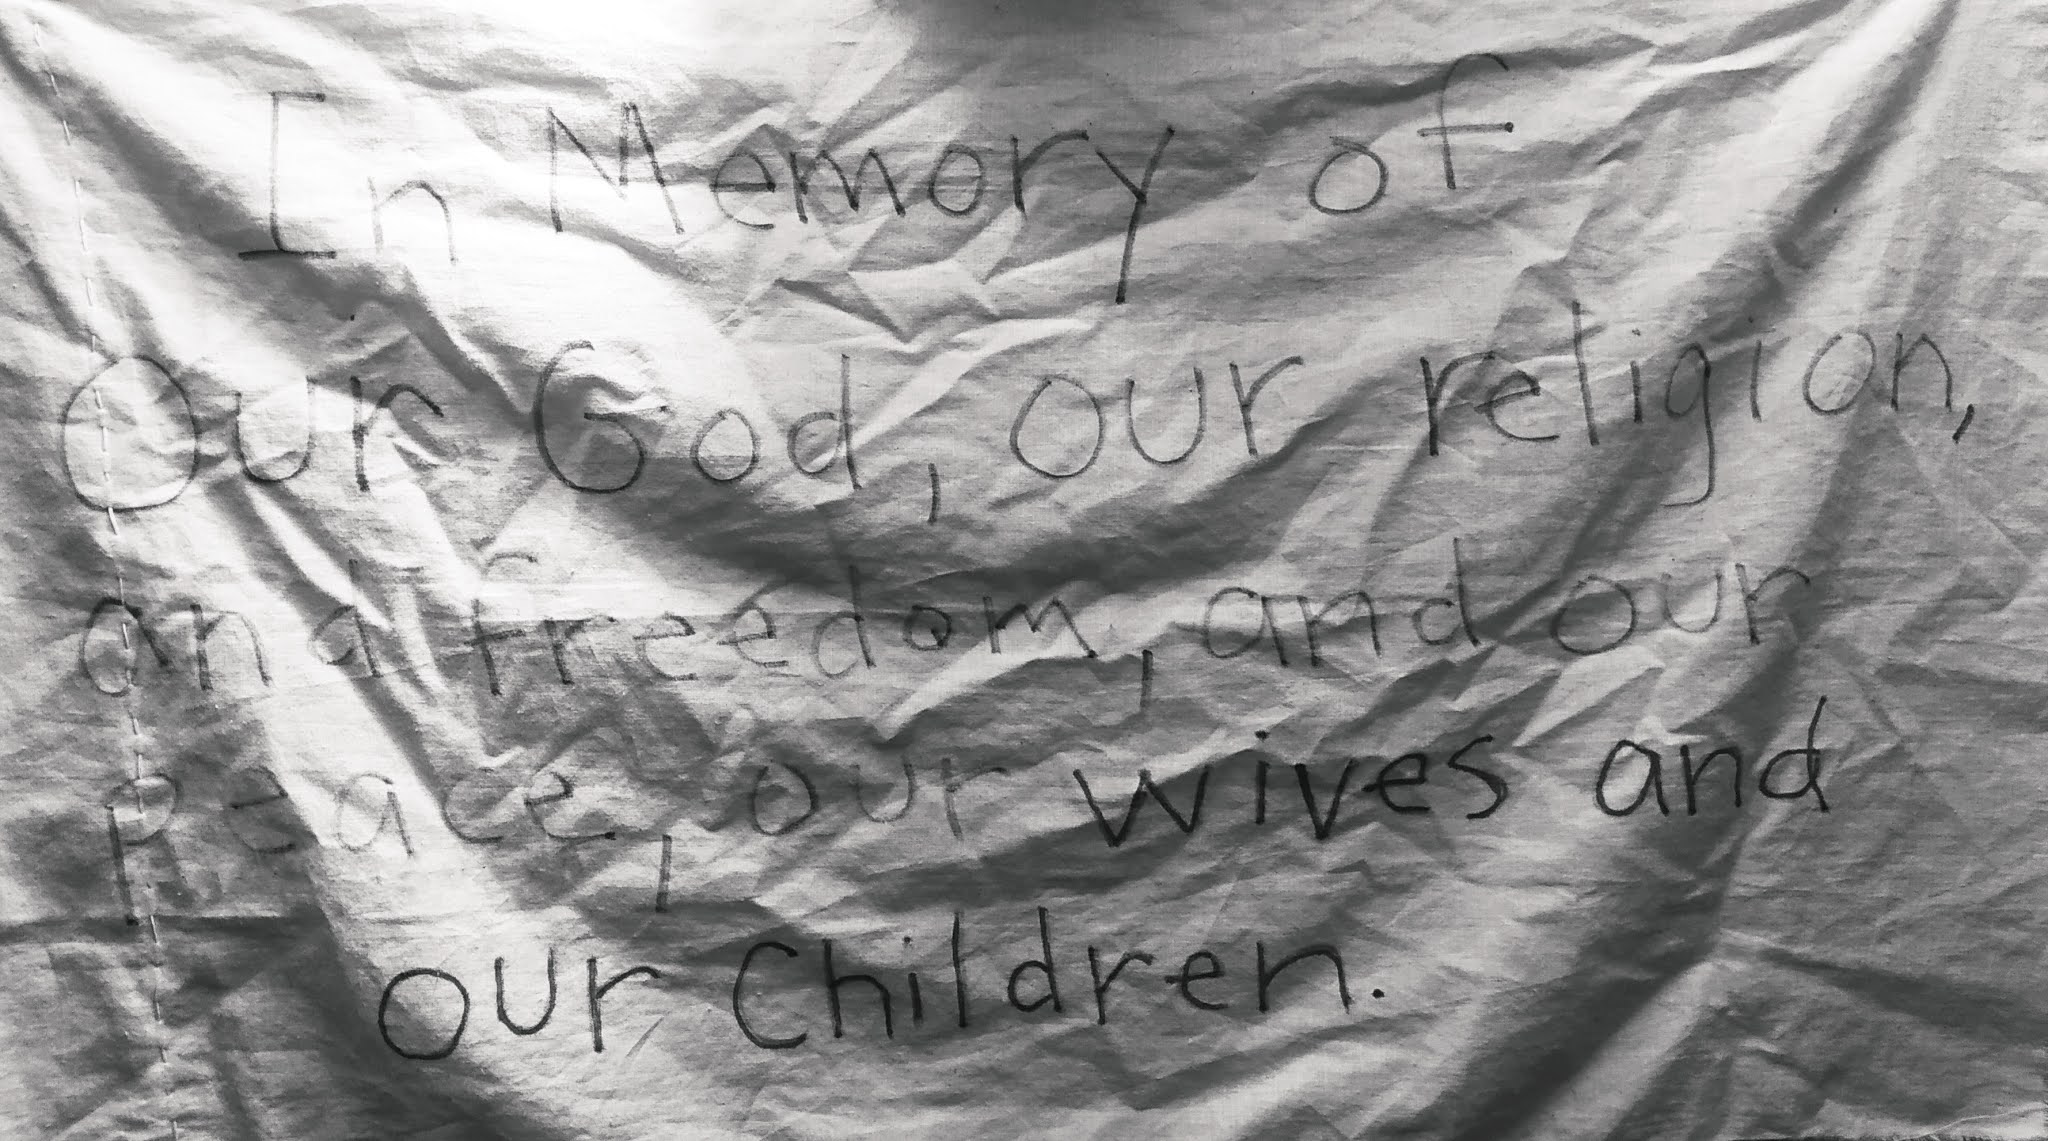 In Memory of
Our God, our religion,
and freedom, and our
peace, our wives and
our Children.